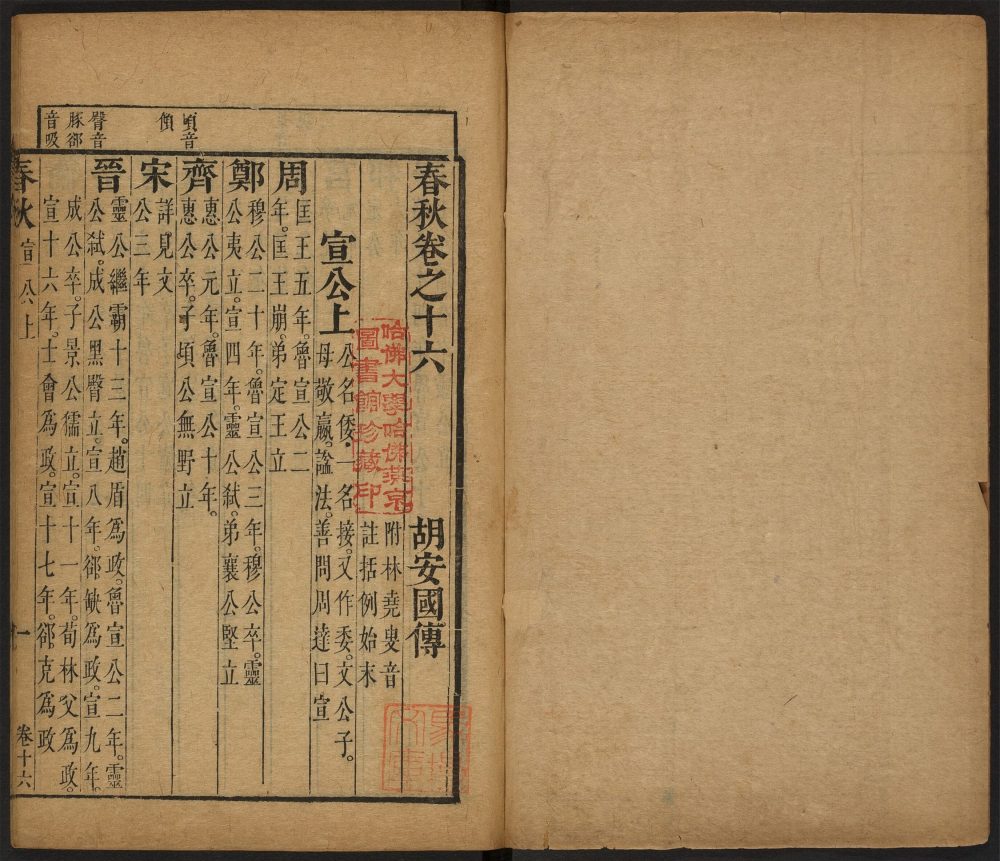 春秋卷之十六
胡安國傳
附林堯叟音
註括例始末
宣公上
公名倭。一名接。又作委。文公子。
母敬嬴。謚法。善問周達曰宣
周
匡王五年。魯宣公二
年。匡王崩。弟定王立
鄭
穆公二十年。魯宣公三年。穆公卒。靈
公夷立。宣四年。靈公弑。弟襄公堅立
齊
惠公元年。魯宣公十年。
惠公卒。子頃公無野立
宋
詳見文
公三年
晉
靈公繼霸十三年。趙盾爲政。魯宣公二年。靈
公弑。成公黑臀立。宣八年。郤缺爲政。宣九年。
成公卒。子景公獳立。宣十一年。荀林父爲政。
宣十六年。士會爲政。宣十七年。郤克爲政
頃音
傾
臀音
豚郤
音吸
春秋
宣公上
一
卷十六
哈佛大學哈佛燕京
圖書館珍藏印